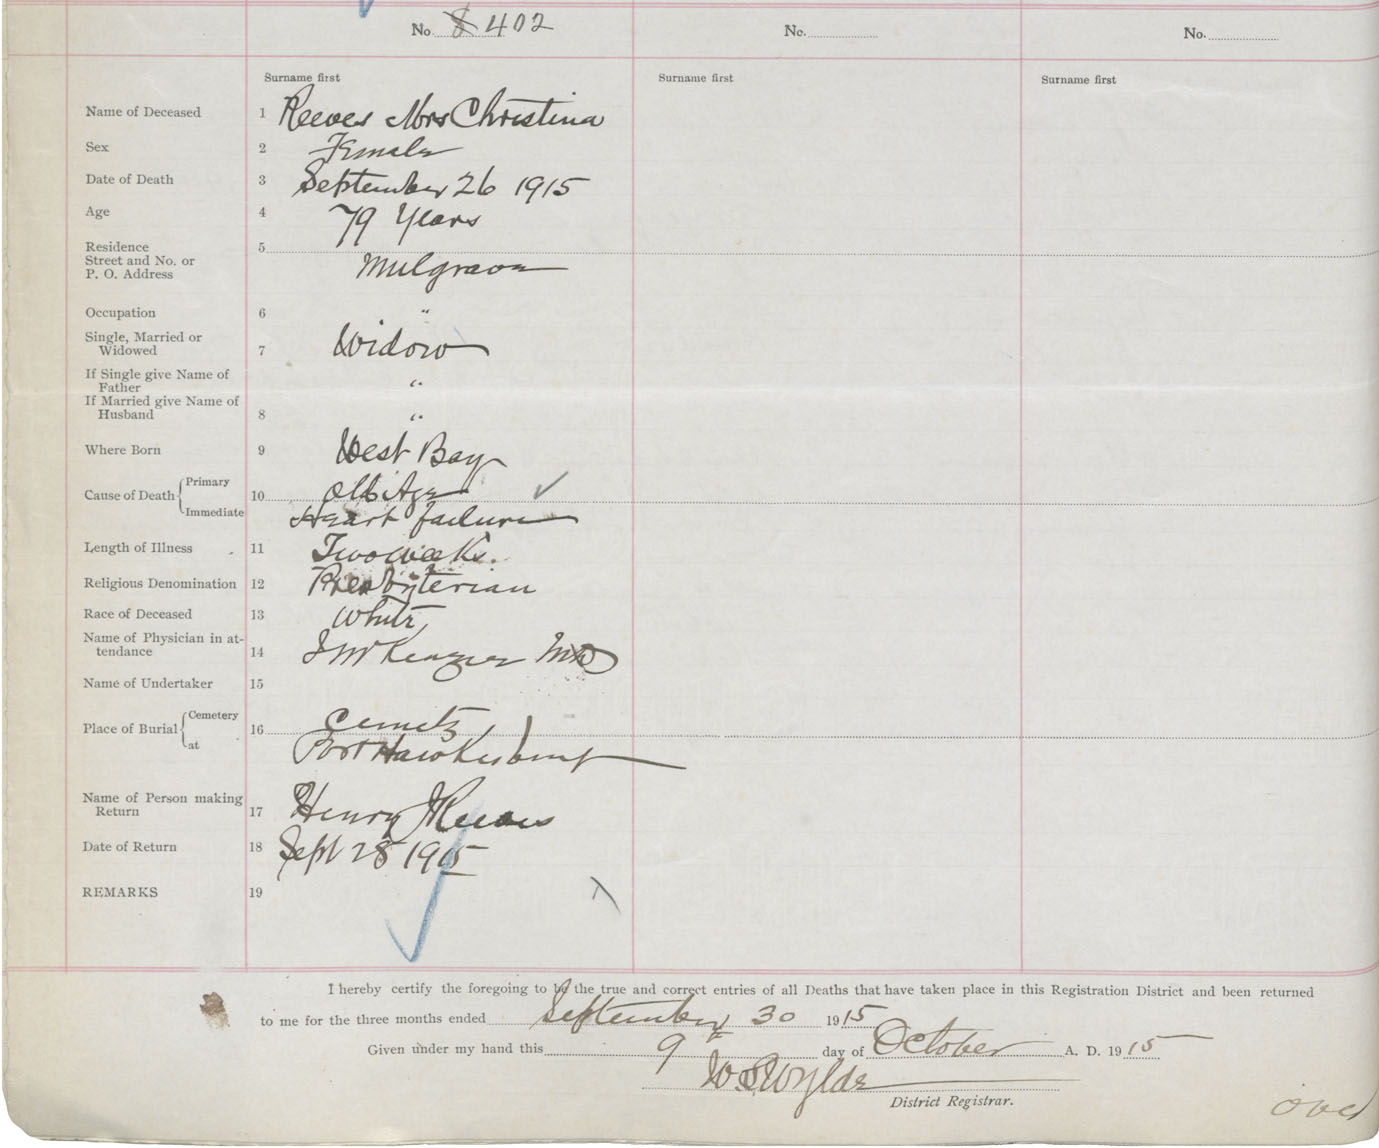 No. 8 402 No. No.
Surname first Surname first Surname first
Name of Deceased 1 Reeves Mrs Christina
Sex 2 Female
Date of Death 3 September 26 1915
Age 4 79 Years
Residence 5
Street and No. or
P. O. Address Mulgrave
Occupation 6 "
Single, Married or
Widowed 7 Widow
If Single give Name of
Father "
If Married give Name of
Husband 8 "
Where Born 9 West Bay
Cause of Death { Primary 10 Old Age
Immediate Heart failure
Length of Illness 11 Two weeks.
Religious Denomination 12 Presbyterian
Race of Deceased 13 White
Name of Physician in at-
tendance 14 MD
Name of Undertaker 15
Place of Burial { Cemetery 16
at Port Hawkesbury
Name of Person making
Return 17 Henry J Reeves
Date of Return 18 Sept 28 1915
REMARKS 19
I hereby certify the foregoing to be the true and correct entries of all Deaths that have taken place in this Registration District and been returned
to me for the three months ended September 30 1915
Given under my hand this 9th day of October A. D. 1915
W S Wylde
District Registrar.
over